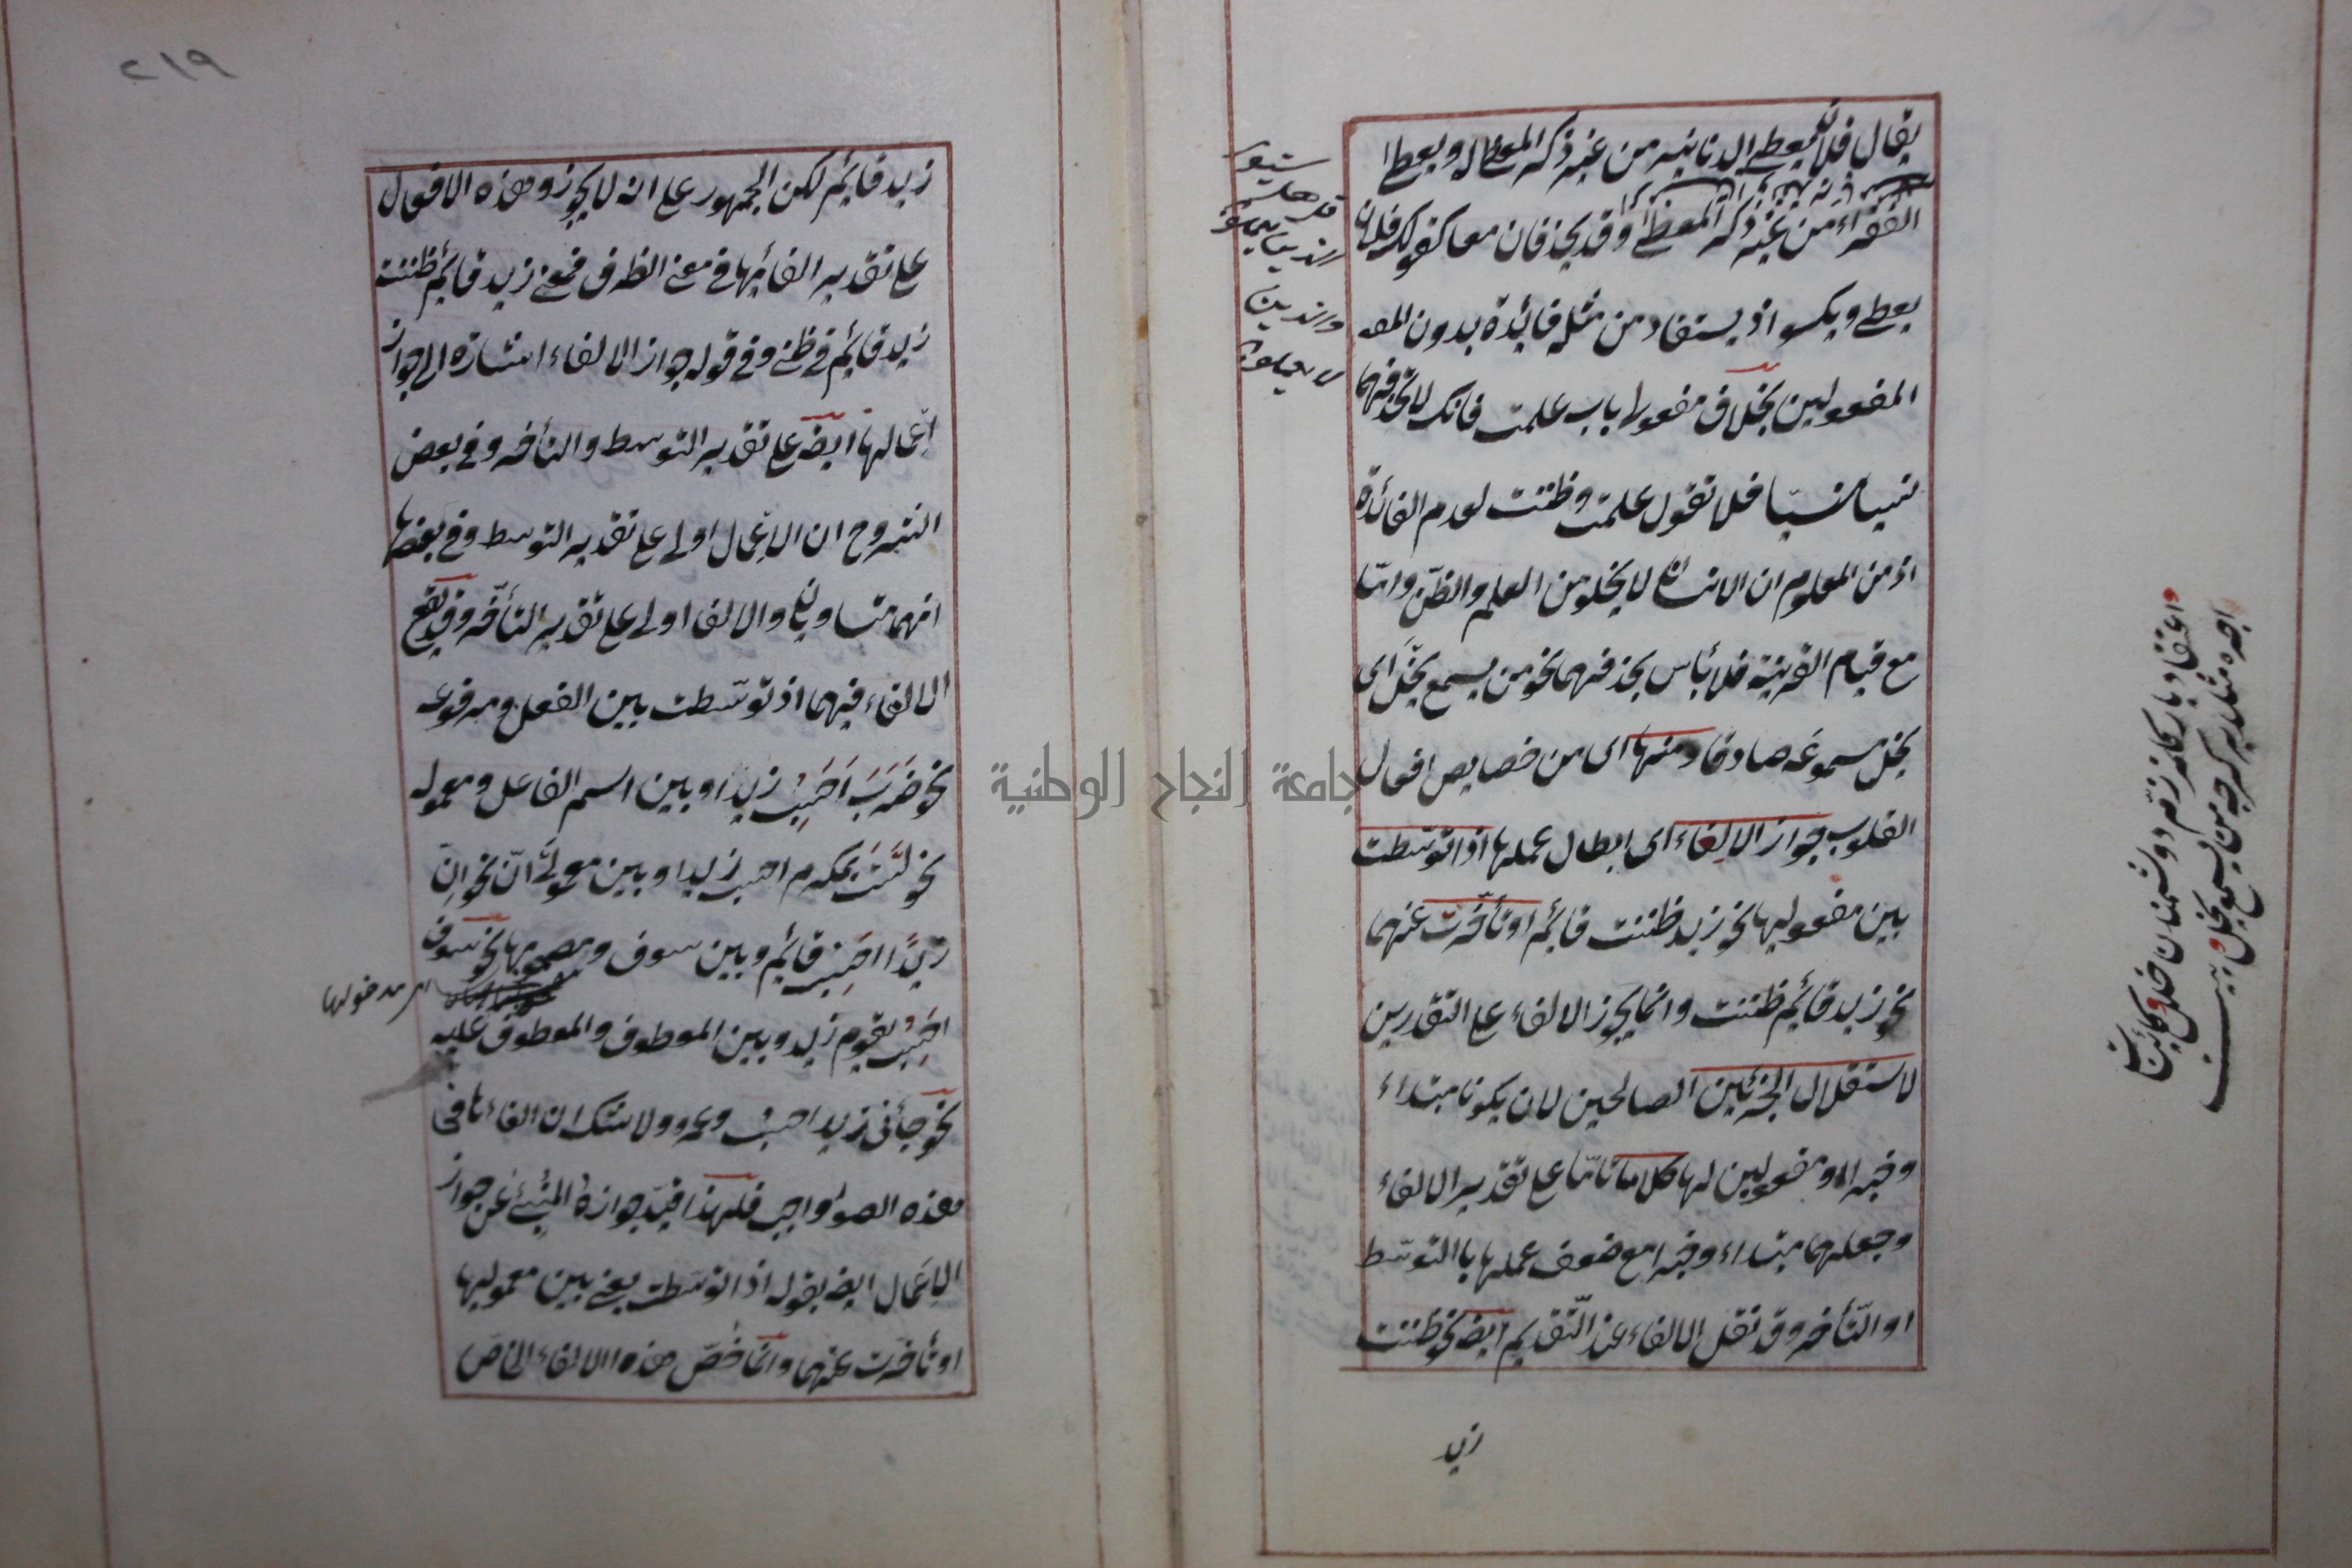 يقال فلان يعطي الدنانير من غير ذكر المعطى له ويعطى
الفقراء من غير ذكر المعطى وقد يحذفان معا كقولك فلان
يعطي ويكسو اذ يستفاد من مثله فائدة بدون المفعـ
المفعولين بخلاف مفعولا باب علمت فانك لا تحذفهما
نسيا منسيّا فلا تقول علمت وظننت لعدم الفائدة
اذ من المعلوم ان الانسان لا يخلو من العلم والظنّ وامّا
مع قيام القرينة فلا بأس بحذفهما نحو من يسمع يخل اى
يخل مسموعه صادقا ومنها اى من خصايص افعال
القلوب جواز الالغاء اى ابطال عملها اذا توسّطت
بين مفعوليها نحو زيد ظننت قائم او تأخّرت عنهما
نحو زيد قائم ظننت وانما يجوز الالغاء على التقديرين
لاستقلال الجزئين الصالحين لان يكونا مبتداء
وخبرا او مفعولين لها كلاما تامّا على تقدير الالغاء
وجعلهما مبتداء وخبرا مع ضعف عملها باالتوسّط
او التّأخر وقد نقل الالغاء عند التّقديم ايض نحو ظننت
زيد
ستيور
قل هل
الذين يعلمون
والذين
لا يعلمون
٢١٩
زيد قائم لكن الجمهور على انه لا يجوز وهذه الافعال
على تقدير الغائها في معنى الظرف فمعنى زيد قائم ظننت
زيد قائم في ظني وفي قوله جواز الالغاء اشارة الى جواز
اعمالها ايض على تقدير التوسط والتأخر وفي بعض
الشروح ان الاعمال اولى على تقدير التوسط وفي بعضها
انهما متساويان والالغا اولى على تقدير التأخّر وقد يقع
الالغاء فيهما اذ توسّطت بين الفعل ومرفوعه
نحو ضَرَبَ اَحْسِبُ زيد او بين اسم الفاعل ومعموله
نحو لَسْتُ بمكرم احسب زيدا وبين معمولَىْ انّ نحو اِنّ
زيدًا احسِب قائم وبين سوف ومصحوبها نحو سوف
اى مدخولها
احسِبُ يقوم زيد وبين المعطوف والمعطوف عليه
نحو جأنى زيد احسبُ وعمرو ولا شك ان الغاءها في
هذه الصور واجب فلهذا قيّد جوازهُ المنبِئ عن جواز
الاعمال ايض بقوله اذا توسّطت يعنى بين معموليها
او تأخّرت عنهما وانما خُصّ هذه الالغاء الخاصّ
جامعة النجاح الوطنية